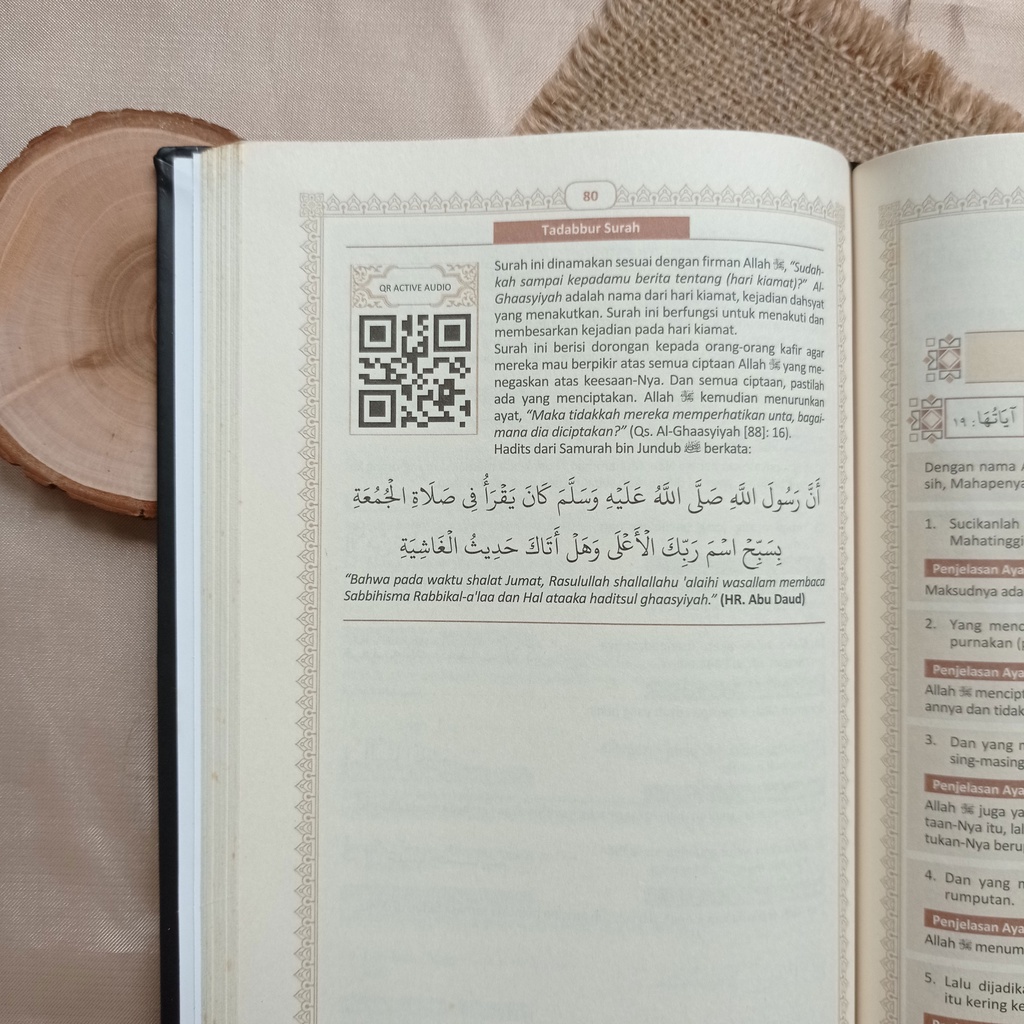 80
Tadabbur Surah
QR ACTIVE AUDIO
Surah ini dinamakan sesuai dengan firman Allah ﷻ, “Sudah-
kah sampai kepadamu berita tentang (hari kiamat)?” Al-
Ghaasyiyah adalah nama dari hari kiamat, kejadian dahsyat
yang menakutkan. Surah ini berfungsi untuk menakuti dan
membesarkan kejadian pada hari kiamat.
Surah ini berisi dorongan kepada orang-orang kafir agar
mereka mau berpikir atas semua ciptaan Allah ﷻ yang me-
negaskan atas keesaan-Nya. Dan semua ciptaan, pastilah
ada yang menciptakan. Allah ﷻ kemudian menurunkan
ayat, “Maka tidakkah mereka memperhatikan unta, bagai-
mana dia diciptakan?” (Qs. Al-Ghaasyiyah [88]: 16).
Hadits dari Samurah bin Jundub berkata:
أَنَّ رَسُولَ اللَّهِ صَلَّى اللَّهُ عَلَيْهِ وَسَلَّمَ كَانَ يَقْرَأُ فِي صَلَاةِ الْجُمُعَةِ
بِسَبِّحْ اسْمَ رَبِّكَ الْأَعْلَى وَهَلْ أَتَاكَ حَدِيثُ الْغَاشِيَةِ
“Bahwa pada waktu shalat Jumat, Rasulullah shallallahu 'alaihi wasallam membaca
Sabbihisma Rabbikal-a'laa dan Hal ataaka haditsul ghaasyiyah.” (HR. Abu Daud)
آيَاتُهَا: ١٩
Dengan nama
sih, Mahapenya
1. Sucikanlah
Mahatinggi
Penjelasan Aya
Maksudnya ada
2. Yang menc
purnakan (
Penjelasan Aya
Allah ﷻ mencipt
annya dan tidak
3. Dan yang
sing-masing
Penjelasan Aya
Allah ﷻ juga ya
taan-Nya itu, lal
tukan-Nya beru
4. Dan yang
rumputan.
Penjelasan Aya
Allah ﷻ menum
5. Lalu dijadik
itu kering ke